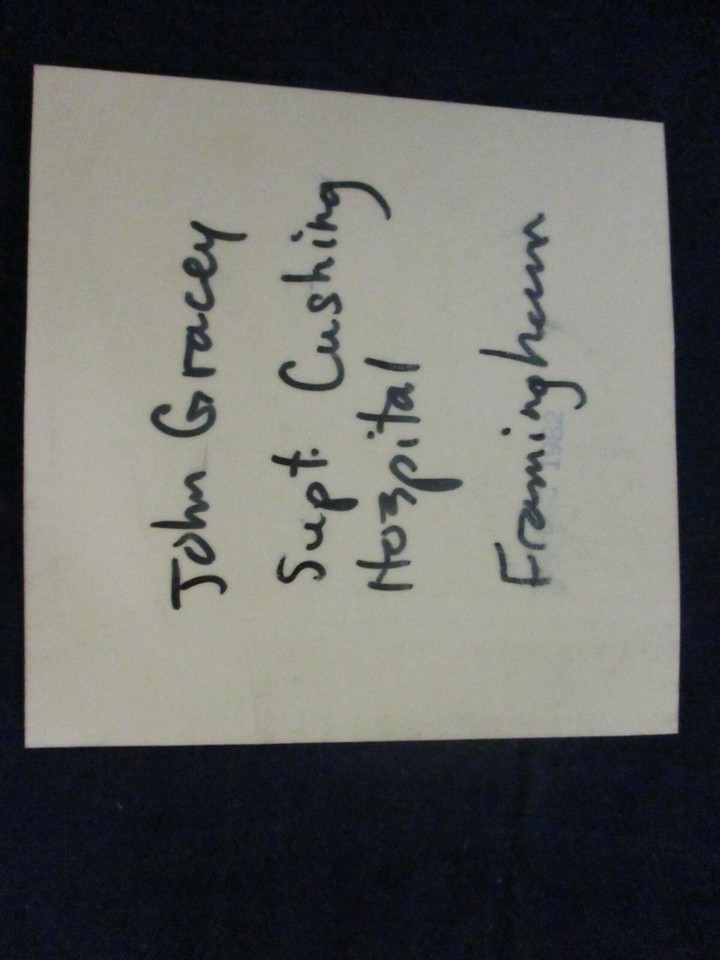 John Gracey
Supt. Cushing
Hospital
Framingham
1982